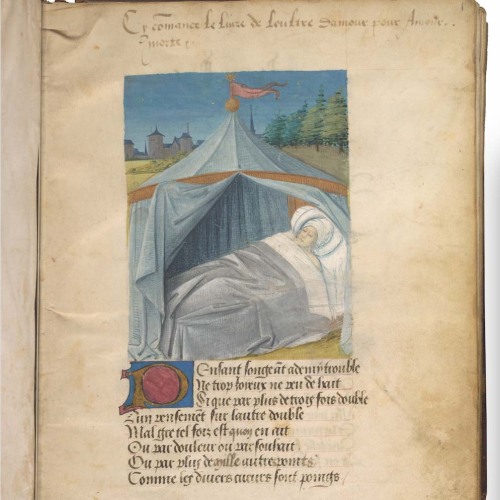 Cy cõmance le liure de loultre damour pour Amour
morte
Pensant songeãt a demy trouble
Ne trop ioyeux ne peu de hait
Si que par plus de trois fois double
L'un pensemẽt sur lautre double
Mal gre tel forz est quoy en ait
Ou par douleur ou par souhait
Ou par plus de mille autres points
Comme les diuers cueurs sont points